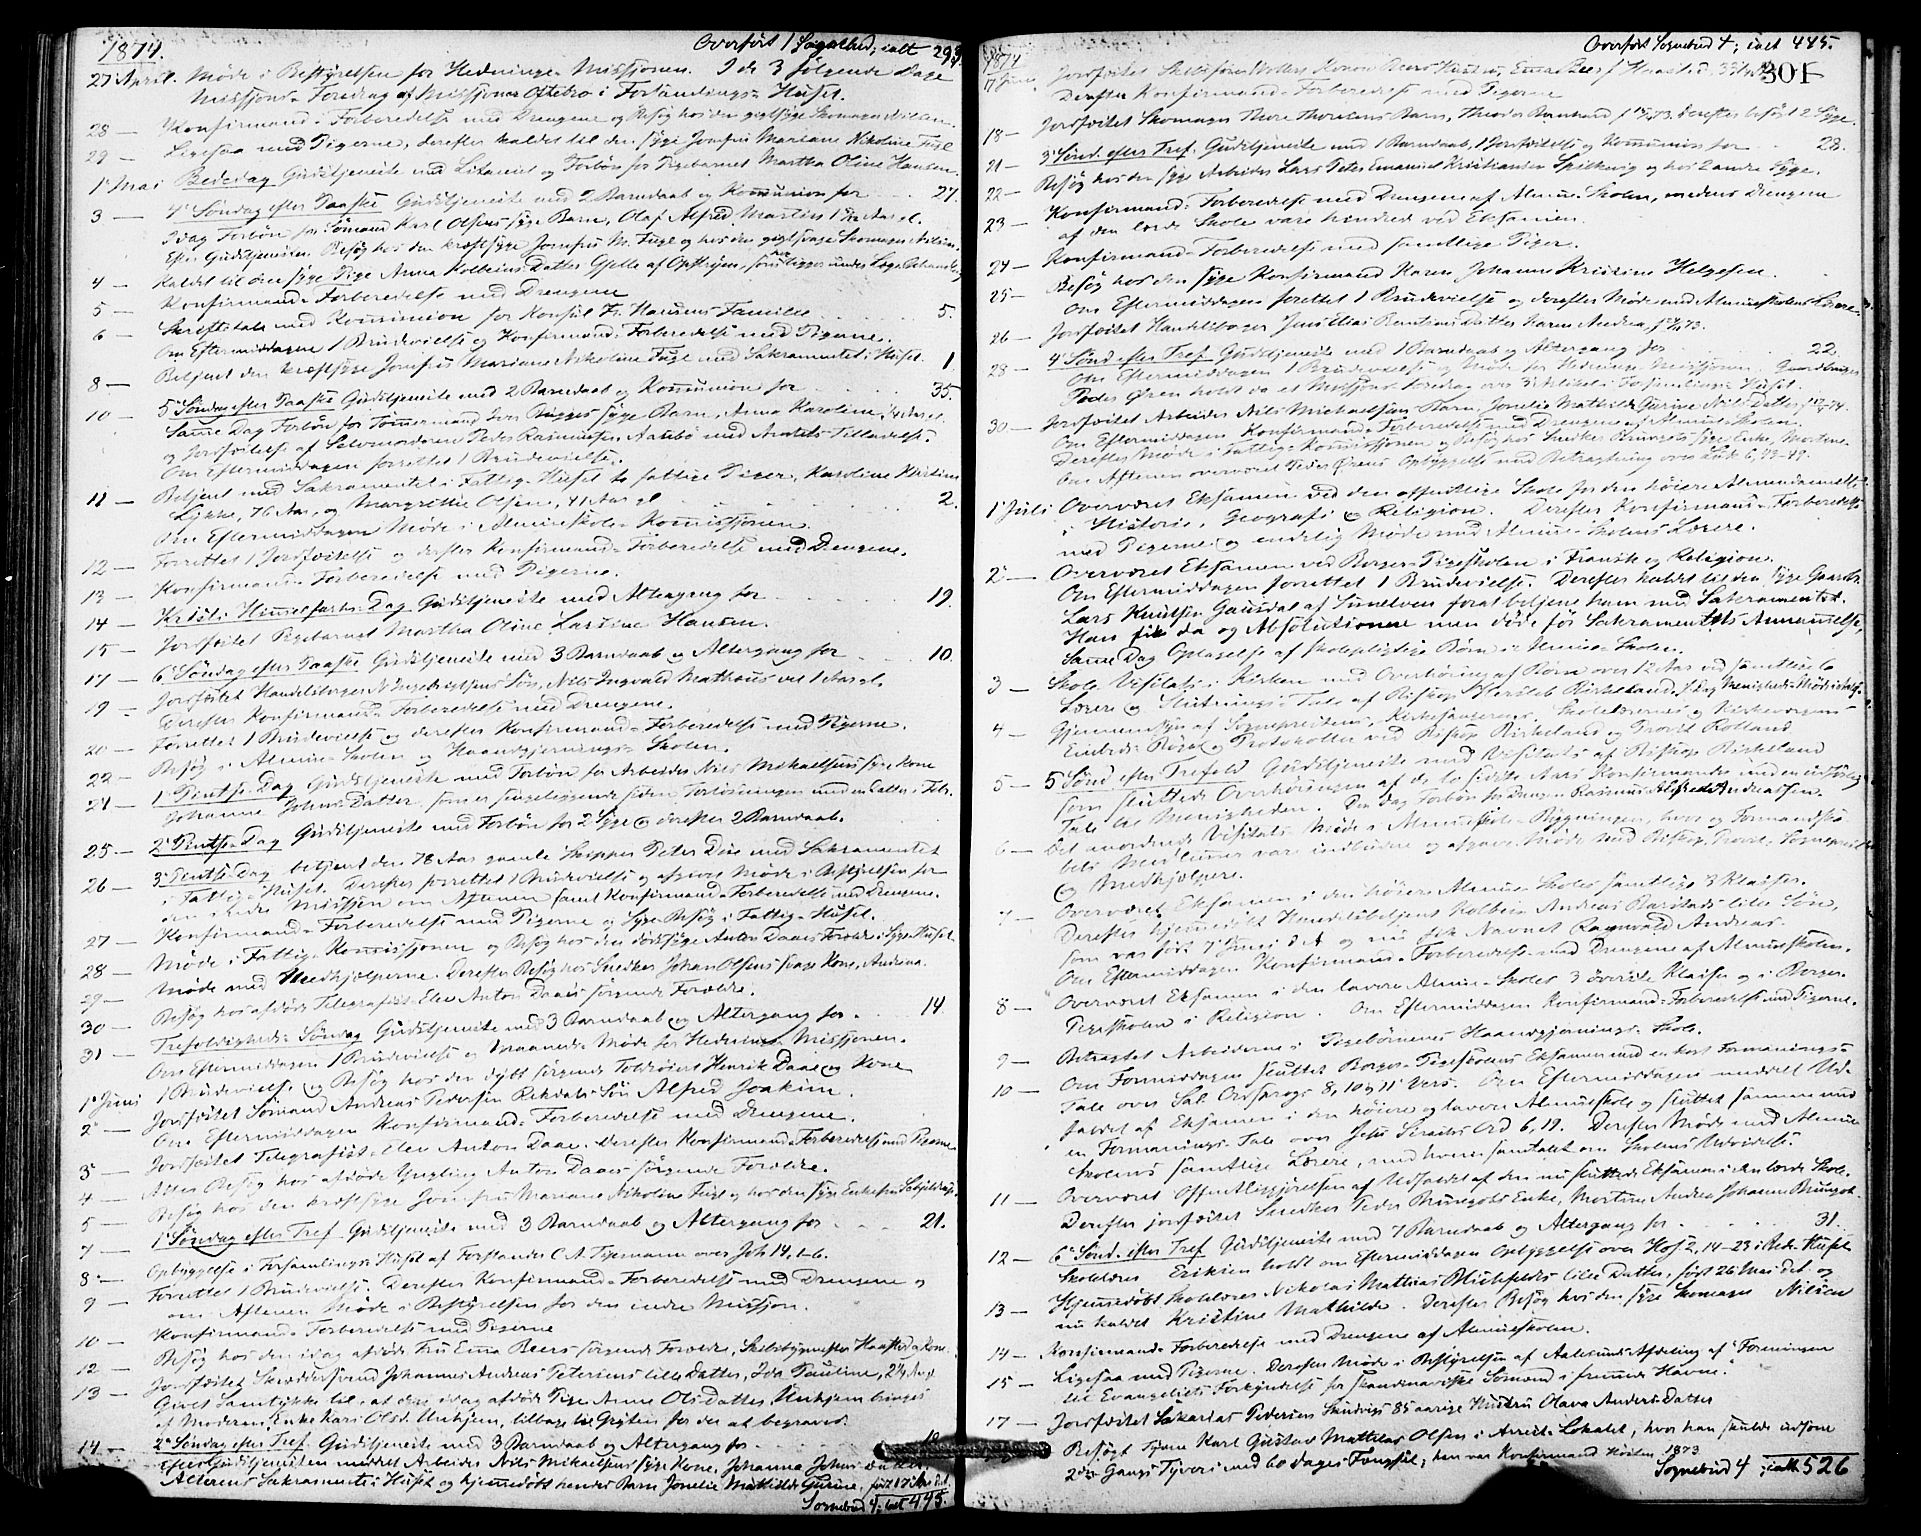 1874.
Overført 1 Sognebud; ialt 293.
27 April. Møde i Bestyrelsen for Hednings-Missjonen. I de 3 følgende Dage
Missjons-Foredrag af Missjonær Oftebro i Forsamlings-Huset.
28 — Konfirmand-Forberedelse med Drengene og Besøg hos den gigtsyge Skomager Nilsen.
29 — Ligesaa med Pigerne, derefter kaldet til den syge Jomfru Mariane Nikoline Fugl
1 Mai Bededag Gudstjeneste med Litaniet og Forbøn for Pigebarnet Martha Oline Hansen.
3 — 4 Søndag efter Paaske Gudstjeneste med 2 Barndaab og Kommunion for 27.
Idag Forbøn for Sømand Karl Olsens syge Barn, Olaf Alfred Martin 1 Aar gl.
Efter Gudstjenesten Besøg hos den kræftsyge Jomfru M. Fugl og hos den gigtsvage Skomager Nilsen.
4 — Kaldet til den syge Pige Anna Kolbeins Datter Gjelle af som her ligger under Læge-Behandling
5 — Konfirmand-Forberedelse med Drengene
6 — Skriftetale med Kommunion for Konsul Fr. Hansens Familie 5.
Om Eftermiddagen 1 Brudevielse og Konfirmand-Forberedelse med Pigerne.
8 — Betjent den kræftsyge Jomfru Mariane Nikoline Fugl med Sakramentet i Huset. 1
10 — 5 Søndag efter Paaske Gudstjeneste med 2 Barndaab og Kommunion for 35.
Samme Dag Forbøn for Tømmermand syge Barn, Anna Karoline
og Jordfæstelse af Selvmorderen Peder Rasmussen Aasebø med Amtets Tilladelse.
Om Eftermiddagen forrettet 1 Brudevielse.
11 — Betjent med Sakramentet i Fattig-Huset to fattige Piger, Karoline
Lykke, 76 Aar, og Margrethe Olsen, 41 Aar gl 2.
Om Eftermiddagen Møde i Almueskole-Kommissjonen.
12 — Forrettet 1 Jordfæstelse og derefter Konfirmand-Forberedelse med Drengene.
13 — Konfirmand-Forberedelse med Pigerne.
14 — Kristi Himmelfarts-Dag Gudstjeneste med Altergang for 19.
15 — Jordfæstet Pigebarnet Martha Oline Lardine Hansen.
17 — 6 Søndag efter Paaske Gudstjeneste med 3 Barndaab og Altergang for 10.
19 — Jordfæstet Handelsborger N. Ingebrigtsens Søn, Nils Ingvald Mathæus vel 1 Aar gl.
Derefter Konfirmand-Forberedelse med Drengene.
20 — Forrettet 1 Brudevielse og derefter Konfirmand-Forberedelse med Pigerne.
22 — Besøg i Almue-Skolen og Haandgjernings-Skolen.
24 — 1 Pintse-Dag Gudstjeneste med Forbøn for Arbeider Nils Mikaelsens syge Kone
Johanne Johns-Datter, som er sengeliggende siden Forløsningen med en Datter i Febr.
25 — 2 Pintse-Dag Gudstjeneste med Forbøn for 2 Syge og derefter 2 Barndaab.
26 — 3 Pintse-Dag betjent den 78 Aar gamle Skipper Peter Due med Sakramentet
i Fattig-Huset. Derefter forrettet 1 Brudevielse og afgivet Møde i Bestyrelsen for
den indre Missjon om Aftenen samt Konfirmand-Forberedelse med Drengene.
27 — Konfirmand-Forberedelse med Pigerne og Syge-Besøg i Fattig-Huset.
28 — Møde i Fattig-Kommissjonen og Besøg hos den dødssyge Anton Daaes Forældre i Syge-Huset
29 — Møde med Medhjælperne. Derefter Besøg hos Snedker Johan Olsens svage Kone, Andrina.
30 — Besøg hos afdøde Telegrafist-Elev Anton Daaes sørgende Forældre.
31 — Trefoldigheds-Søndag Gudstjeneste med 3 Barndaab og Altergang for 14.
Om Eftermiddagen 1 Brudevielse og Maaneds-Møde for Hednings-Missjonen.
1 Juni 1 Brudevielse og Besøg hos den dybt sørgende Toldrorist Henrik Daae og Kone
2 — Jordfæstet Sømand Andreas Pedersen Rekdals Søn Alfred Joakim.
Om Eftermiddagen Konfirmand-Forberedelse med Drengene.
3 — Jordfæstet Telegrafist-Elev Anton Daae. Derefter Konfirmand-Forberedelse med Pigerne
4 — Atter Besøg hos afdøde Yngling Anton Daaes sørgende Forældre.
5 — Besøg hos den kræftsyge Jomfru Mariane Nikoline Fugl og hos den syge Enkefru
7 — 1 Søndag efter Tref. Gudstjeneste med 3 Barndaab og Altergang for 21.
8 — Opbyggelse i Forsamlings-Huset af Forstander C. A. Tigemann over Joh 14, 1-6.
9 — Forrettet 1 Brudevielse. Derefter Konfirmand-Forberedelse med Drengene og
om Aftenen Møde i Bestyrelsen for den indre Missjon.
10 — Konfirmand-Forberedelse med Pigerne
12 — Besøg hos den idag afdøde Fru Ema Beers sørgende Forældre, Skibsbygmester Haasted og Kone.
13 — Jordfæstet Skræddersvend Johannes Andreas Petersens lille Datter, Ida Pauline, 2½ Aar gl
Givet Samtykke til, at den idag afdøde Pige Anne Ols-Datter Unhjem bringes
af Moderen Enke Kari Olsd. Unhjem, tilbage til Grytten for der at begraves.
14 — 2 Søndag efter Tref. Gudstjeneste med 3 Barndaab og Altergang for
Efter Gudstjenesten meddelt Arbeider Nils Mikaelsens syge Kone, Johanna Johns-Datter
Alterens Sakramente i Huset og hjemedøbt hendes Barn Jonelie Mathilde Gurine, født 17
Sognebud 4; ialt 445.
1874
Overført Sognebud 4; ialt 445.
301
17 Juni Jordfæstet Skibsfører Konow Beers Hustru, Ema Beer f. Haasted, 33
Derefter Konfirmand-Forberedelse med Pigerne
18 — Jordfæstet Skomager Thore Thoresens Barn, Theodor Bernhard f. 73. derefter besøgt 2 Syge.
21 — 3 Sønd. efter Tref. Gudstjeneste med 1 Barndaab, 1 Jordfæstelse og Kommunion for 28.
22 — Besøg hos den syge Arbeider Lars Peter Emanuel Kristiansen Spilkevig og hos 2 andre Syge.
23 — Konfirmand-Forberedelse med Drengene af Almue-Skolen, medens Drengene
af den lærde Skole vare hindrede ved Eksamen.
24 — Konfirmand-Forberedelse med samtlige Piger.
25 — Besøg hos den syge Konfirmand Karen Johanne Kristine Helgesen.
Om Eftermiddagen forrettet 1 Brudevielse og derefter Møde med Almueskolens Lærere.
26 — Jordfæstet Handelsborger Jens Elias Datter Maren Andrea,
28 — 4 Sønd. efter Tref. Gudstjeneste med 1 Barndaab og Altergang for 22
Om Eftermiddagen 1 Brudevielse og Møde for Hednings-Missjonen. Gaardbruger
Peder Øren holdt da et Missjons-Foredrag over 3 Artikel i Forsamlings-Huset.
30 — Jordfæstet Arbeider Nils Michaelsens Barn, Jonelie Mathilde Gurine Nils-Datter,
Om Eftermiddagen Konfirmand-Forberedelse med Drengene af Almue-Skolen.
Derefter Møde i Fattig-Kommissjonen og Besøg hos Snedker Brungots syge Enke, Mortine.
Om Aftenen overværet Peder Ørens Opbyggelse med Betragtning over Luk 6, 43-49.
1 Juli Overværet Eksamen ved den offentlige Skole for den høiere Almendannelse
i Historie, Geografi og Religion. Derefter Konfirmand-Forberedelse
med Pigerne og endelig Møde med Almue-Skolens Lærere.
2 — Overværet Eksamen ved Borger-Pigeskolen i Fransk og Religion.
Om Eftermiddagen forrettet 1 Brudevielse. Derefter kaldet til den syge Gaardbr.
Lars Knutsen Gausdal af Sunelven for at betjene ham med Sakramentet.
Han fik da og Absolutionen men døde før Sakramentets Annammelse,
Samme Dag Optagelse af skolepligtige Børn i Almue-Skolen.
3 — Skole-Visitats i Kirken med Overhøring af Børn over 12 Aar ved samtlige 6
Lærere og Slutnings-Tale af Biskop Hersleb Birkeland. Idag Menigheds-Møde
4 — Gjennemsyn af Sognepræstens, Kirkesangerens, Skolelærernes og Kirkeværgens
Embeds-Bøger og Protokoller ved Biskop Birkeland og Provst Rolland
5 — 5 Sønd. efter Trefold. Gudstjeneste med Visitats af Biskop Birkeland
som sluttede Overhøringen af de to sidste Aars Konfirmander med en indholdsrig
Tale til Menigheden. Den Dag Forbøn for Drengen Rasmus Alfred Andreassen.
6 — Det anordnede Visitats-Møde i Almueskole-Bygningen, hvor og Formandska-
bets Medlemmer vare indbudne og afgave Møde med Biskop, Provst, Sognepræst
og Medhjælpere.
7 — Overværet Eksamen i den høiere Almue-Skoles samtlige 3 Klasser.
Derefter hjemedøbt Handelsbetjent Kolbein Andreas Barstads lille Søn,
som var født 7 Juni d.A og nu fik Navnet Ragnvald Andreas.
Om Eftermiddagen Konfirmand-Forberedelse med Drengene af Almueskolen.
8 — Overværet Eksamen i den lavere Almue-Skoles 3 øverste Klasser og i Borger-
Pigeskolen i Religion. Om Eftermiddagen Konfirmand-Forberedelse med Pigerne.
9 — Betragtet Arbeiderne i Pigebørnenes Haandgjernings-Skole.
10 — Om Formiddagen sluttet Borger-Pigeskolens Eksamen med en kort Formanings-
Tale over Sal. Ordsprog 8, 10 og 11 Vers. Om Eftermiddagen meddelt Ud-
faldet af Eksamen i den høiere og lavere Almueskole og sluttet sammen med
en Formanings-Tale over Jesu Siraks Ord 6, 19. Derefter Møde med Almue-
Skolens samtlige Lærere, med hvem samtalt om Skolens Udvidelse.
11 — Overværet Offentliggjørelsen af Udfaldet af den nu sluttede Eksamen i den lærde Skole.
Derefter jordfæstet Snedker Peder Brungots Enke, Mortine Andrea Johanne Brungot.
12 — 6 Sønd. efter Tref Gudstjeneste med 7 Barndaab og Altergang for 31.
Skolelærer Eriksen holdt om Eftermiddagen Opbyggelse over Hos 2, 14-23 i Bede-Huset
13 — Hjemmedøbt Skolelærer Nikolai Mathias Blichfeldts lille Datter, født 26 Mai d.A. og
nu kaldet Kristine Mathilde. Derefter Besøg hos den syge Skomager Nilsen
14 — Konfirmand-Forberedelse med Drengene af Almueskolen.
15 — Ligesaa med Pigerne. Derefter Møde i Bestyrelsen af Aalesunds Afdeling af "Foreningen
til Evangeliets Forkyndelse for skandinaviske Sømænd i fremmede Havne."
17 — Jordfæstet Sakarias Pedersen Skudvigs 85 aarige Hustru Olava Anders-Datter
Besøgt Tyven Karl Gustav Matthias Olsen i Arrest-Lokalet, hvor han skulde indsone
2den Gangs Tyveri med 60 Dages Fængsel; han var Konfirmand Høsten 1873
Sognebud 4; ialt 526